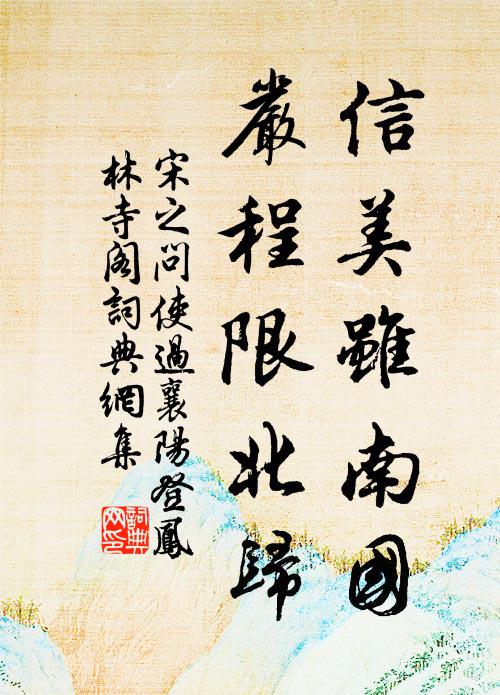 信美雖南國
嚴程限北歸
宋之問使過襄陽登鳳
林寺閣詞典網集
詞典
网印